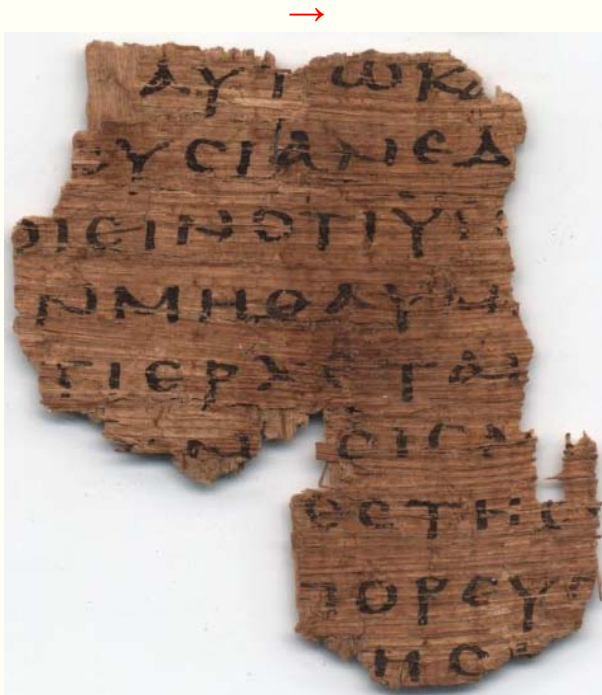 ΑΥΤΩΚΑ
ΟΥCΙΑΝΕΔ
ΟΙΕΙΝΟΤΙΥΙ
ΝΜΗΘΑΥΜ
ΤΙΕΡΧΕΤΑΙ
Ν ΟΙCΜ
ΕCΤΗC
ΠΟΡΕΥC
ΗC